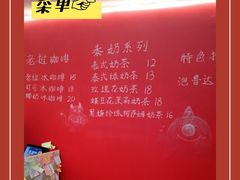 菜单
老挝咖啡
老挝冰咖啡 15
可可冰咖啡 18
椰奶冰咖啡 20
泰奶系列
泰式奶茶 12
泰式绿奶茶 13
玫瑰花奶茶 18
蝶豆花茉莉奶茶 18
奶茶 16
特色
泡鲁达